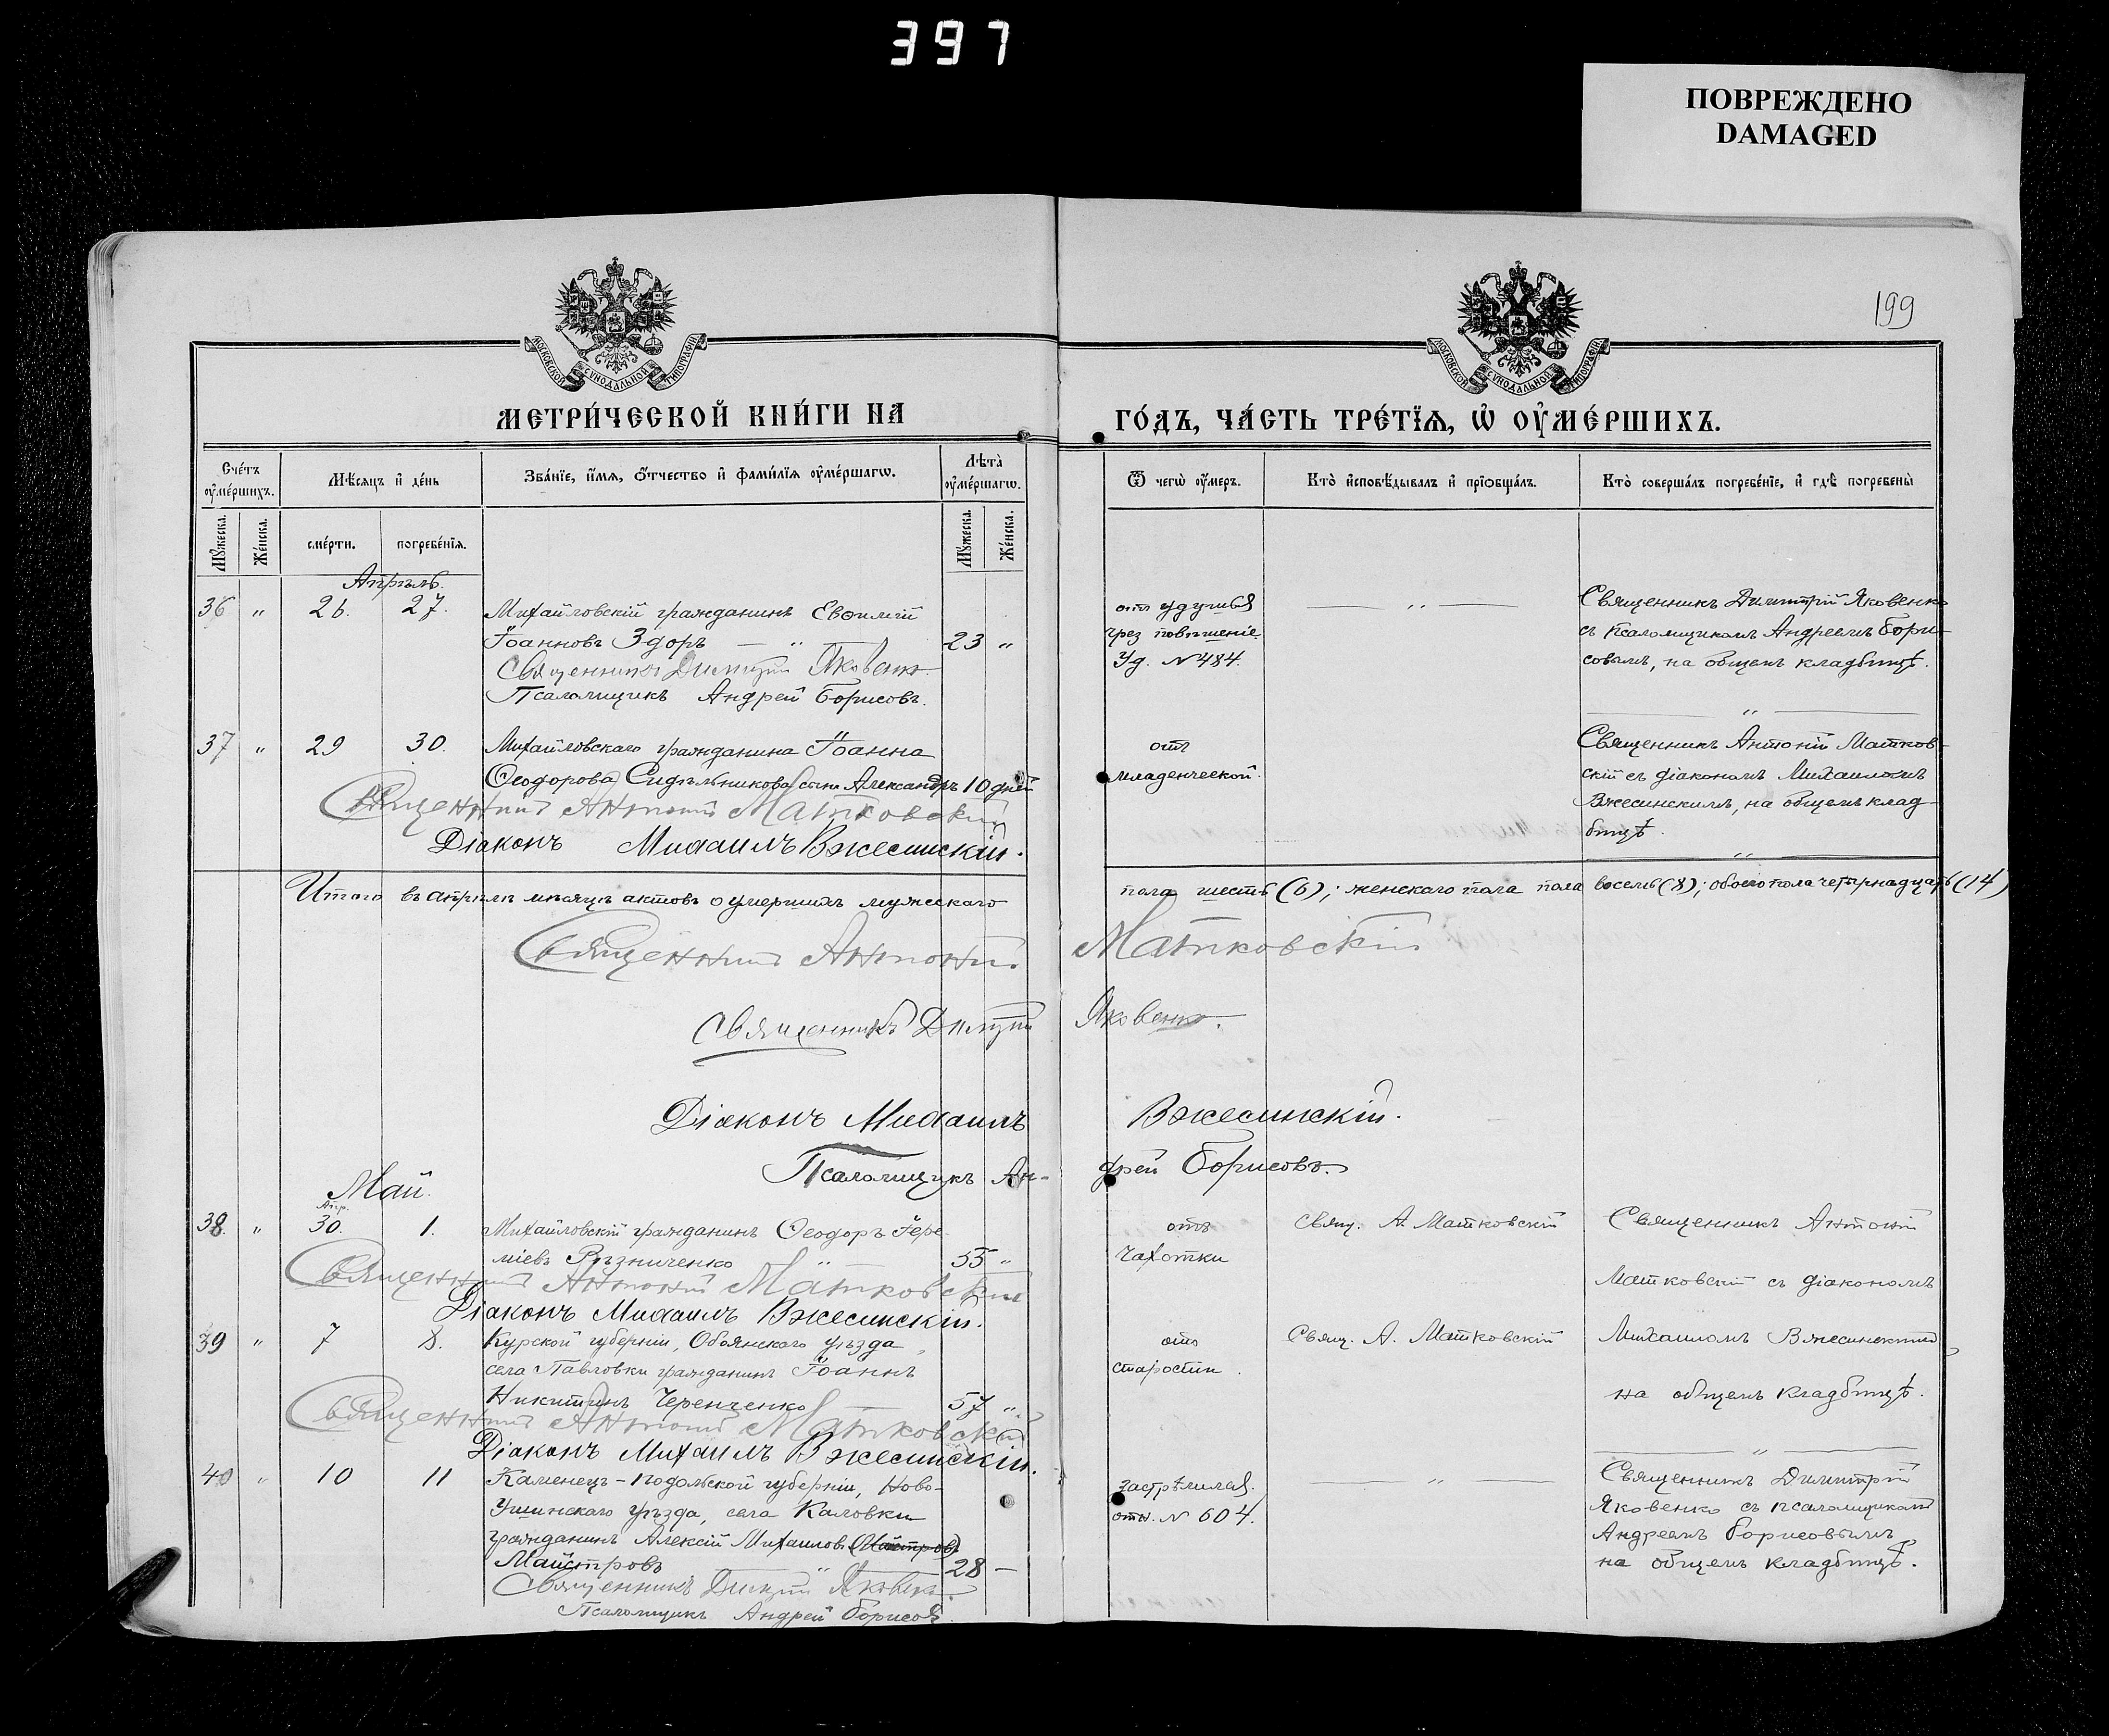 397
ПОВРЕЖДЕНО
DAMAGED
199
МОСКОВСКОЙ СУНОДАЛЬНОЙ ТИПОГРАФІИ
МОСКОВСКОЙ СУНОДАЛЬНОЙ ТИПОГРАФІИ
МЕТРИ́ЧЕСКОЙ КНИ́ГИ НА
ГО́ДЪ, ЧА́СТЬ ТРЕ́ТЇѦ, Ѡ ОУ҆МЕ́РШИХЪ.
Сче́тъ оу҆ме́ршихъ.
Мѣ́сяцъ и҆ де́нь
Зва́нїе, и҆́мѧ, ѻ҆́тчество и҆ фами́лїѧ оу҆ме́ршагѡ.
Лѣ́та оу҆ме́ршагѡ.
Ѿ чегѡ̀ оу҆́меръ.
Кто̀ и҆сповѣ́дывалъ и҆ прїѻбща́лъ.
Кто̀ соверша́лъ погребе́нїе, и҆ гдѣ̀ погребены̀
Мꙋ́жеска.
Же́нска.
сме́рти.
погребе́нїѧ.
Мꙋ́жеска.
Же́нска.
Апрѣль.
36 " 26. 27. Михайловскій гражданинъ Евѳимій
Іоанновъ Здоръ — " — 23 "
Священникъ Димитрій Яковенко
Псаломщикъ Андрей Борисовъ.
отъ удушья
чрез повѣшеніе
Уд. № 484.
— " —
Священникъ Димитрій Яковенко
съ псаломщикомъ Андреемъ Бори-
совымъ, на общемъ кладбищѣ.
— " —
37 " 29 30. Михайловскаго гражданина Іоанна
Ѳеодорова Сидѣльникова сынъ Александръ 10 дней
Священникъ Антоній Матковскій
Діаконъ Михаилъ Вжесинскій.
отъ
младенческой.
Священникъ Антоній Матков-
скій съ діакономъ Михаиломъ
Вжесинскимъ, на общемъ клад-
бищѣ.
— " —
Итого въ апрѣлѣ мѣсяцѣ актовъ о умершихъ мужескаго
пола шесть (6); женскаго пола пола восемь (8); обоего пола четырнадцать (14)
Священникъ Антоній Матковскій
Священникъ Димитрій Яковенко.
Діаконъ Михаилъ Вжесинскій.
Псаломщикъ Андрей Борисовъ.
Май.
Апр.
38. " 30. 1. Михайловскій гражданинъ Ѳеодоръ Іере-
міевъ Рѣзниченко " 55 "
Священникъ Антоній Матковскій
Діаконъ Михаилъ Вжесинскій.
отъ
чахотки
Свящ. А. Матковскій
Священникъ Антоній
Матковскій съ діакономъ
39 " 7 8. Курской губерніи, Обоянскаго уѣзда,
села Павловки гражданинъ Іоаннъ
Никитинъ Черенченко — 57 "
Священникъ Антоній Матковскій
Діаконъ Михаилъ Вжесинскій.
отъ
старости.
Свящ. А. Матковскій
Михаиломъ Вжесинскимъ,
на общемъ кладбищѣ.
— " —
40 " 10 11 Каменецъ-Подольской губерніи, Ново-
Ушинскаго уѣзда, села Каловки
гражданинъ Алексій Михаиловъ (Майстровъ)
Майстровъ — " — 28 —
Священникъ Димитрій Яковенко
Псаломщикъ Андрей Борисовъ.
застрѣлился.
отн. № 604.
— " —
Священникъ Димитрій
Яковенко съ псаломщикомъ
Андреемъ Борисовымъ
на общемъ кладбищѣ.